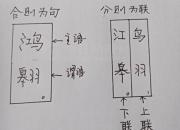 合则为句
分则为联
鸿
皋羽
主语
谓语
江鸟
皋羽
下联
上联